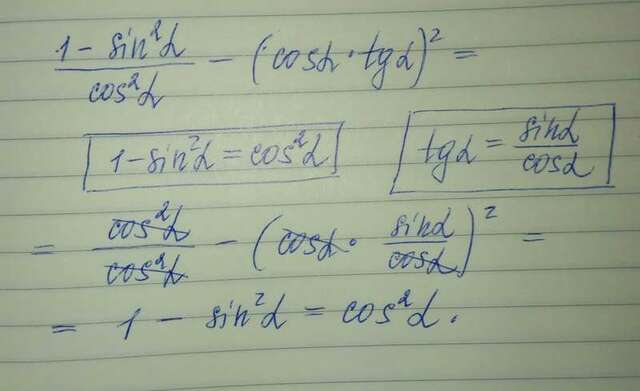 (1 - sin²α)/cos²α - (cosα · tgα)² =
1 - sin²α = cos²α   tgα = sinα/cosα
= cos²α/cos²α - (cosα · sinα/cosα)² =
= 1 - sin²α = cos²α.